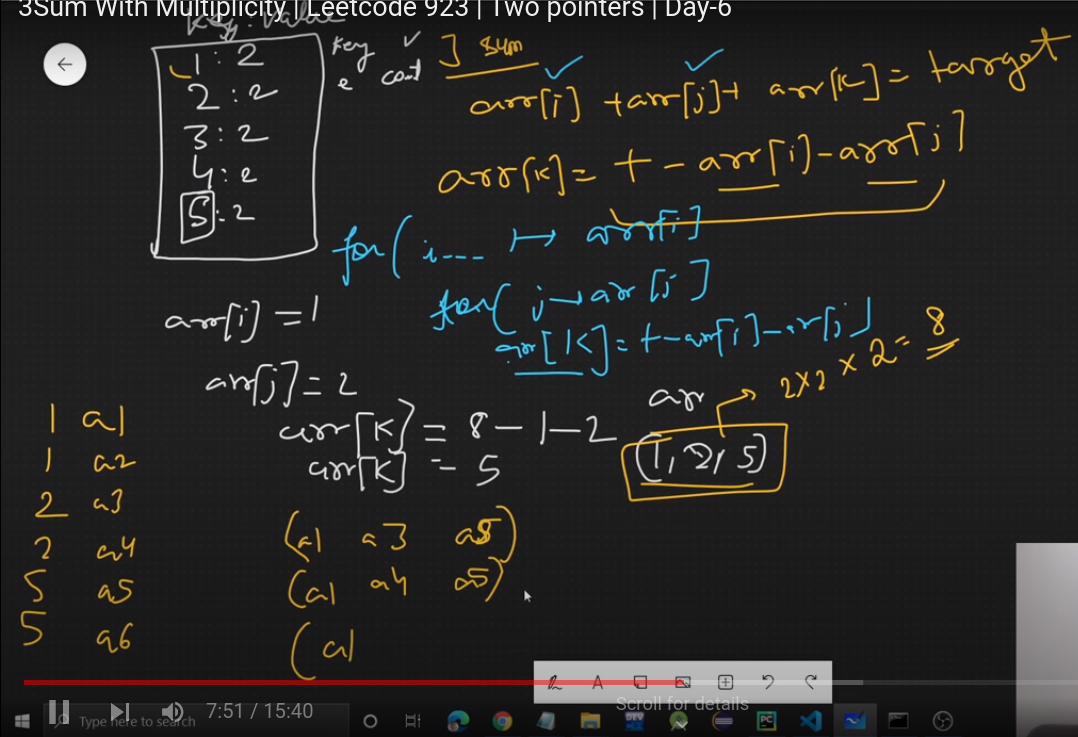 3Sum With Multiplicity | Leetcode 923 | Two pointers | Day-6
key : value
1 : 2
2 : 2
3 : 2
4 : 2
5 : 2
key
count
3 sum
arr[i] + arr[j] + arr[k] = target
arr[k] = t - arr[i] - arr[j]
for( i--- → arr[i]
for( j → arr[j]
arr[k] = t - arr[i] - arr[j]
arr[i] = 1
arr[j] = 2
arr[k] = 8 - 1 - 2
arr[k] = 5
arr
2 x 2 x 2 = 8
(1, 2, 5)
1 a1
1 a2
2 a3
2 a4
5 a5
5 a6
(a1 a3 a5)
(a1 a4 a5)
(a1
Scroll for details
7:51 / 15:40
Type here to search
DEV
PC